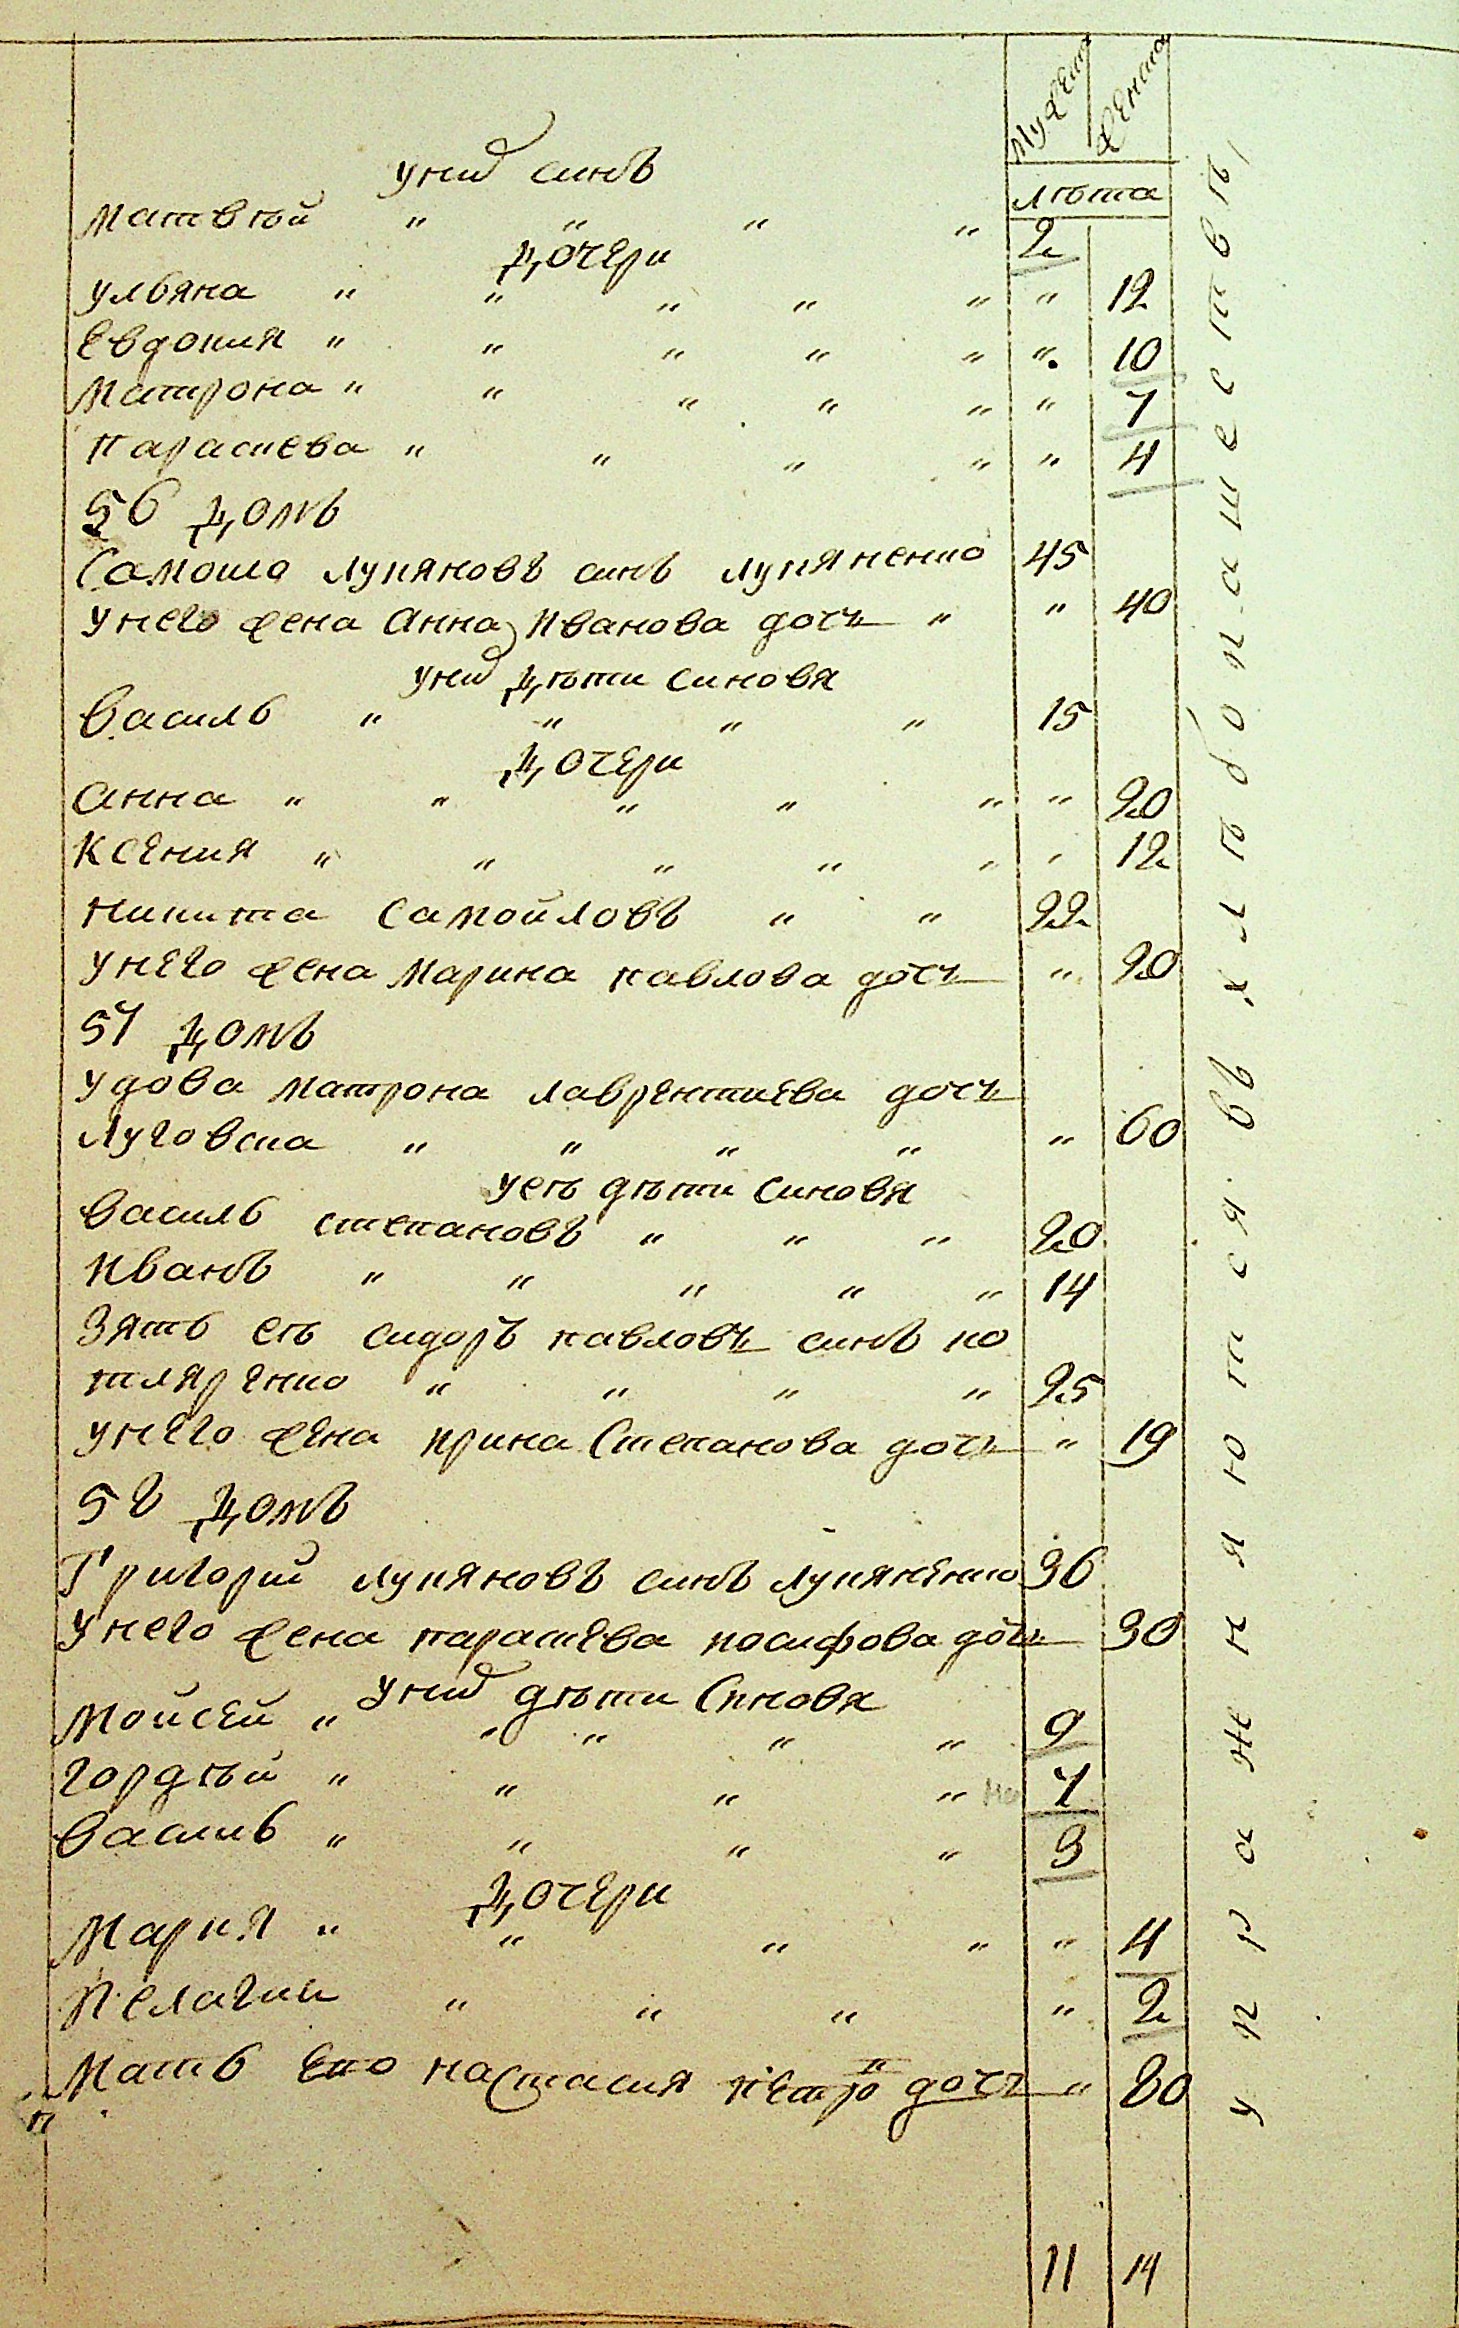 Мужеска Женска
лѣта
уних синъ
Матвѣй " " " " 2
Дочери
Ульяна " " " " " " 12
Евдокия " " " " " " 10
Матрона " " " " " " 7
Параскева " " " " " 4
56 Домъ
Самойло Лукяновъ синъ Лукяненко 45
Унего жена Анна Иванова дочъ " " 40
Уних Дѣти Синовя
Василь " " " " 15
Дочери
Анна " " " " " " 20
Ксения " " " " " " 12
Никита Самойловъ " " 22
Унего жена Марина Павлова дочъ " 20
57 Домъ
Удова Матрона Лаврентиева дочъ
Луговска " " " " " 60
Уеѣ дѣти Синовя
Василь Степановъ " " " 20
Иванъ " " " " " 14
Зять еѣ Сидоръ Павловъ синъ Ко
тляренко " " " " 25
Унего жена Ирина Степанова дочъ " 19
58 Домъ
Григорий Лукяновъ синъ Лукяненко 36
Унего жена Параскева Иосифова дочъ 30
Уних дѣти Синовя
Мойсей " " " " " 9
Гордѣй " " " " 7
Василь " " " " 3
Дочери
Мария " " " " " 4
Пелагии " " " " 2
Мать Его Настасия Петро дочъ " 80
11 14
упражняются въ хлѣбопашествѣ